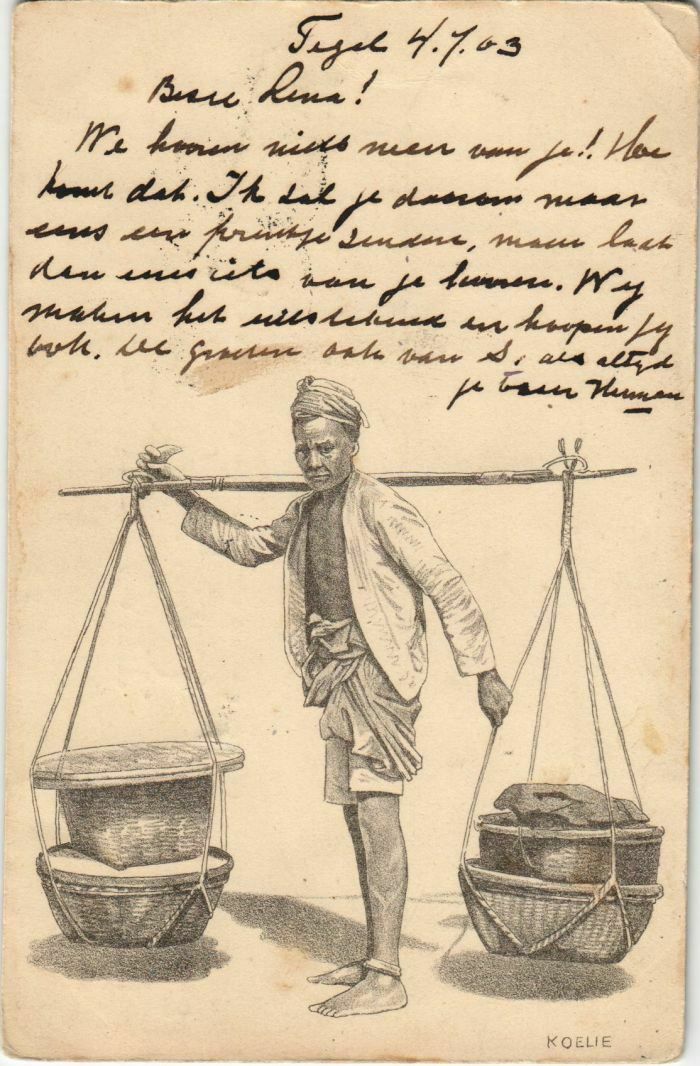 Tegal 4.7.03
Beste Lena!
We hooren niets meer van je!! Hoe
komt dat. Ik zal je daarom maar
eens een prentje zenden, maar laat
dan eens iets van je hooren. Wy
maken het uitstekend en hoopen jy
ook. De groeten ook van S. als altyd
je broer Herman
KOELIE